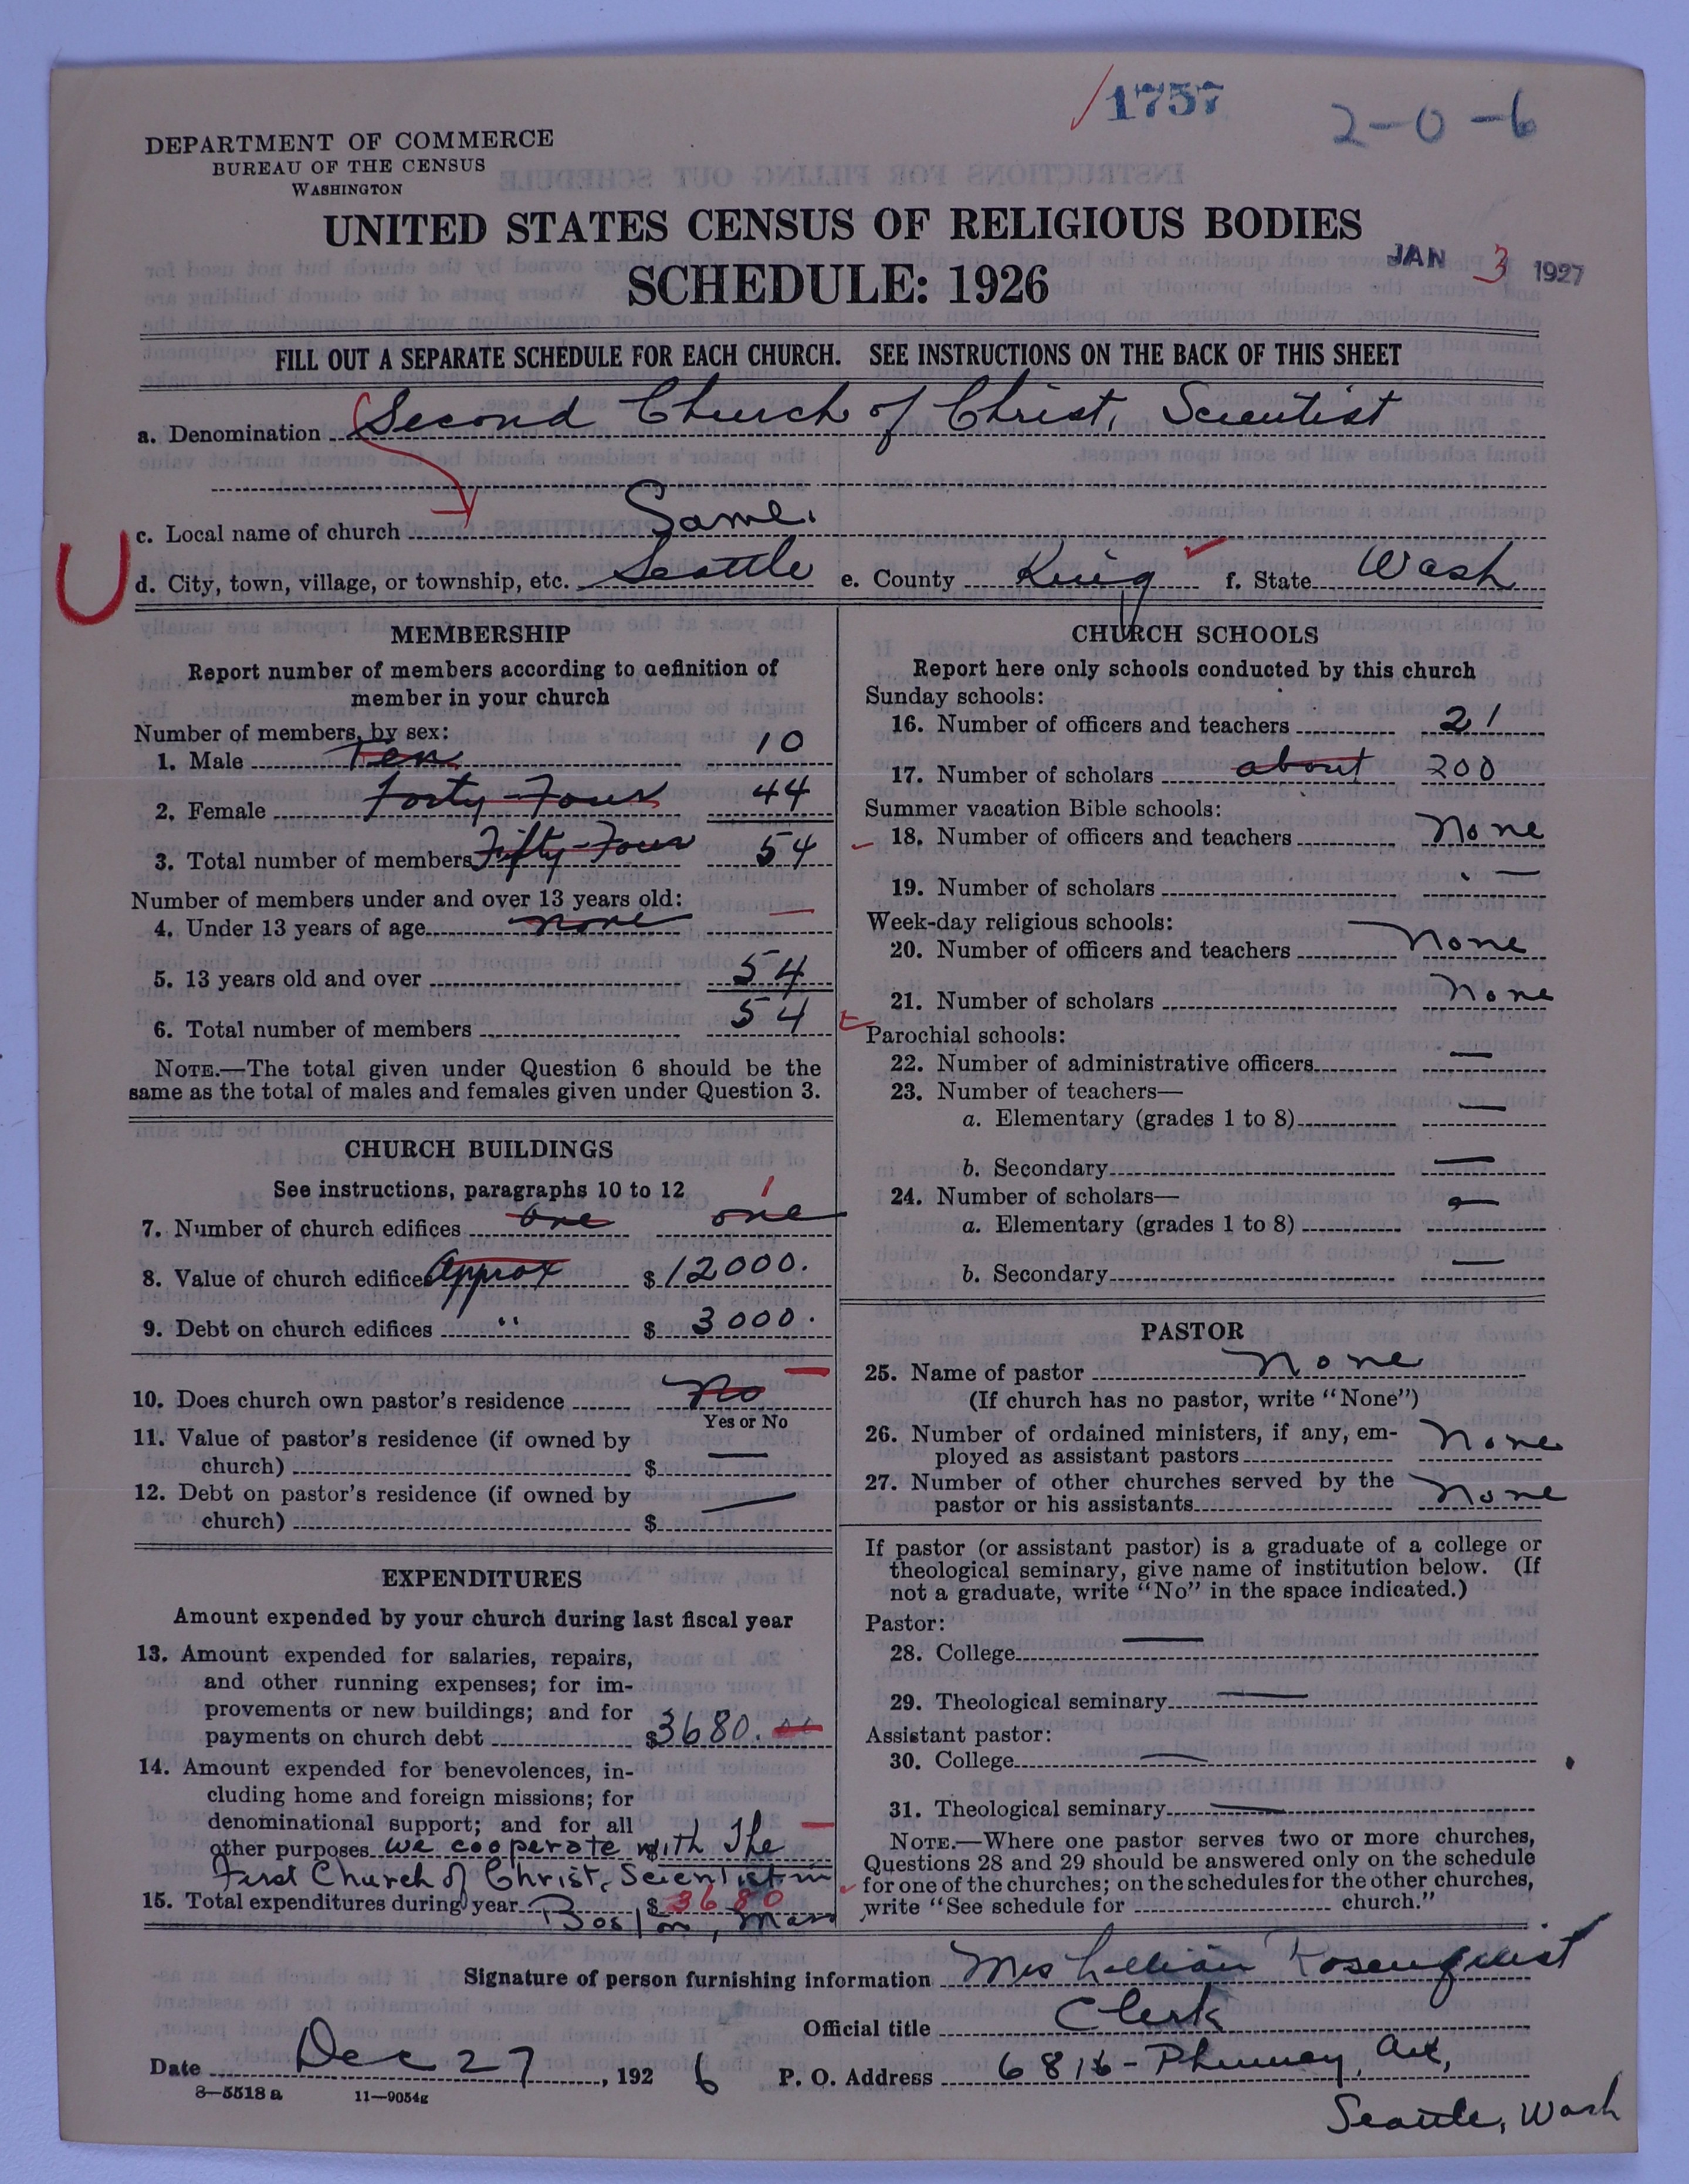 1757
2-0-6
DEPARTMENT OF COMMERCE
BUREAU OF THE CENSUS
WASHINGTON
UNITED STATES CENSUS OF RELIGIOUS BODIES
SCHEDULE: 1926
JAN 3 1927
FILL OUT A SEPARATE SCHEDULE FOR EACH CHURCH. SEE INSTRUCTIONS ON THE BACK OF THIS SHEET
a. Denomination Second Church of Christ, Scientist
c. Local name of church Same.
d. City, town, village, or township, etc. Seattle e. County King f. State Wash
MEMBERSHIP
Report number of members according to definition of
member in your church
Number of members, by sex:
1. Male Ten 10
2. Female Forty-Four 44
3. Total number of members Fifty-Four 54
Number of members under and over 13 years old:
4. Under 13 years of age none —
5. 13 years old and over 54
6. Total number of members 54
NOTE.—The total given under Question 6 should be the
same as the total of males and females given under Question 3.
CHURCH BUILDINGS
See instructions, paragraphs 10 to 12 1
7. Number of church edifices one one
8. Value of church edifices approx $ 12000.
9. Debt on church edifices " $ 3000.
10. Does church own pastor's residence No
Yes or No
11. Value of pastor's residence (if owned by
church) $ —
12. Debt on pastor's residence (if owned by
church) $ —
EXPENDITURES
Amount expended by your church during last fiscal year
13. Amount expended for salaries, repairs,
and other running expenses; for im-
provements or new buildings; and for
payments on church debt $3680.
14. Amount expended for benevolences, in-
cluding home and foreign missions; for
denominational support; and for all
other purposes we cooperate $ with The
First Church of Christ, Scientist in
15. Total expenditures during year $ 3680
Boston, Mass
CHURCH SCHOOLS
Report here only schools conducted by this church
Sunday schools:
16. Number of officers and teachers 21
17. Number of scholars about 200
Summer vacation Bible schools:
18. Number of officers and teachers None
19. Number of scholars —
Week-day religious schools:
20. Number of officers and teachers None
21. Number of scholars None
Parochial schools:
22. Number of administrative officers —
23. Number of teachers—
a. Elementary (grades 1 to 8) —
b. Secondary —
24. Number of scholars—
a. Elementary (grades 1 to 8) —
b. Secondary —
PASTOR
25. Name of pastor None
(If church has no pastor, write "None")
26. Number of ordained ministers, if any, em-
ployed as assistant pastors None
27. Number of other churches served by the
pastor or his assistants None
If pastor (or assistant pastor) is a graduate of a college or
theological seminary, give name of institution below. (If
not a graduate, write "No" in the space indicated.)
Pastor:
28. College —
29. Theological seminary —
Assistant pastor:
30. College —
31. Theological seminary —
NOTE.—Where one pastor serves two or more churches,
Questions 28 and 29 should be answered only on the schedule
for one of the churches; on the schedules for the other churches,
write "See schedule for church."
Signature of person furnishing information Mrs Lillian Rosenquist
Official title Clerk
Date Dec 27, 1926 P. O. Address 6816 - Phinney Ave,
Seattle, Wash
8—5518 a 11—9054g